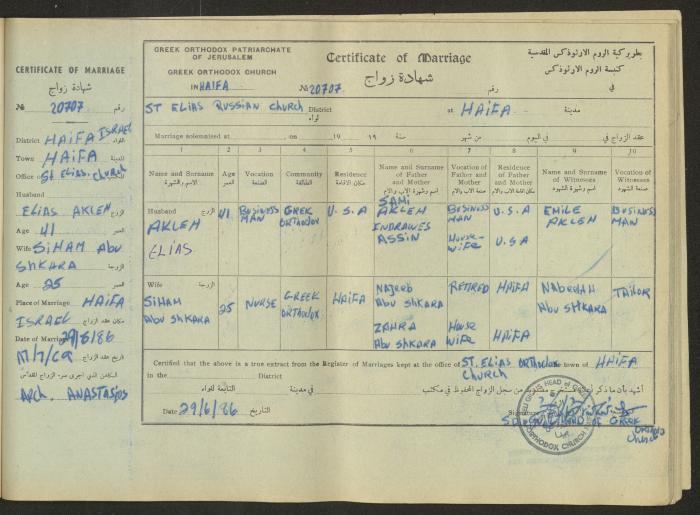 CERTIFICATE OF MARRIAGE
شهادة زواج
№ 20707 رقم
District HAIFA ISRAEL
Town HAIFA
Office of St ELIAS. Church
Husband
ELIAS AKLEH
Age 41 العمر
Wife SIHAM Abu
Shkara الزوجة
Age 25 العمر
Place of Marriage HAIFA
ISRAEL مكان عقد الزواج
Date of Marriage 29/6/86
تاريخ عقد الزواج
Arch. ANASTASIOS
GREEK ORTHODOX PATRIARCHATE
OF JERUSALEM
GREEK ORTHODOX CHURCH
IN HAIFA
Certificate of Marriage
شهادة زواج
№ 20707 رقم
بطريركية الروم الارثوذكس المقدسية
كنيسة الروم الارثوذكس
في
ST ELIAS RUSSIAN CHURCH District لواء at HAIFA مدينة
Marriage solemnised at on 19 ١٩ سنة من شهر في اليوم عقد الزواج في
1 2 3 4 5 6 7 8 9 10
Name and Surname الاسم والشهرة
Age العمر
Vocation الصنعة
Community الطائفة
Residence مكان الاقامة
Name and Surname of Father and Mother اسم وشهرة الاب والام
Vocation of Father and Mother صنعة الاب والام
Residence of Father and Mother مكان اقامة الاب والام
Name and Surname of Witnesses اسم وشهرة الشهود
Vocation of Witnesses صنعة الشهود
Husband الزوج
AKLEH
ELIAS
41
BUSINESS MAN
GREEK ORTHODOX
U.S.A
SAMI AKLEH
INDRAWES ASSIN
BUSINESS MAN
HOUSE-WIFE
U.S.A
U.S.A
EMILE AKLEH
BUSINESS MAN
Wife الزوجة
SIHAM
Abu Shkara
25
NURSE
GREEK ORTHODOX
HAIFA
NAJEEB
Abu Shkara
ZAHRA
Abu Shkara
RETIRED
HOUSE WIFE
HAIFA
HAIFA
NABEEHAH
Abu SHKARA
TAILOR
Certified that the above is a true extract from the Register of Marriages kept at the office of ST. ELIAS ORTHODOX Church the town of HAIFA
in the District التابعة للواء في مدينة
Date 29/6/86 التاريخ
Signature